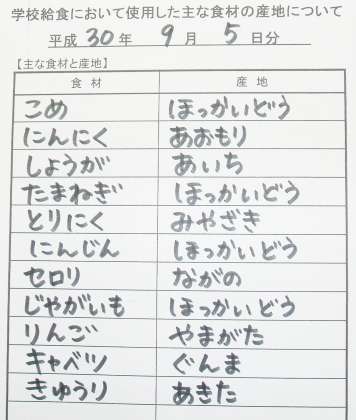 学校給食において使用した主な食材の産地について
平成30年 9月 5日分
【主な食材と産地】
食材 産地
こめ ほっかいどう
にんにく あおもり
しょうが あいち
たまねぎ ほっかいどう
とりにく みやざき
にんじん ほっかいどう
セロリ ながの
じゃがいも ほっかいどう
りんご やまがた
キャベツ ぐんま
きゅうり あきた